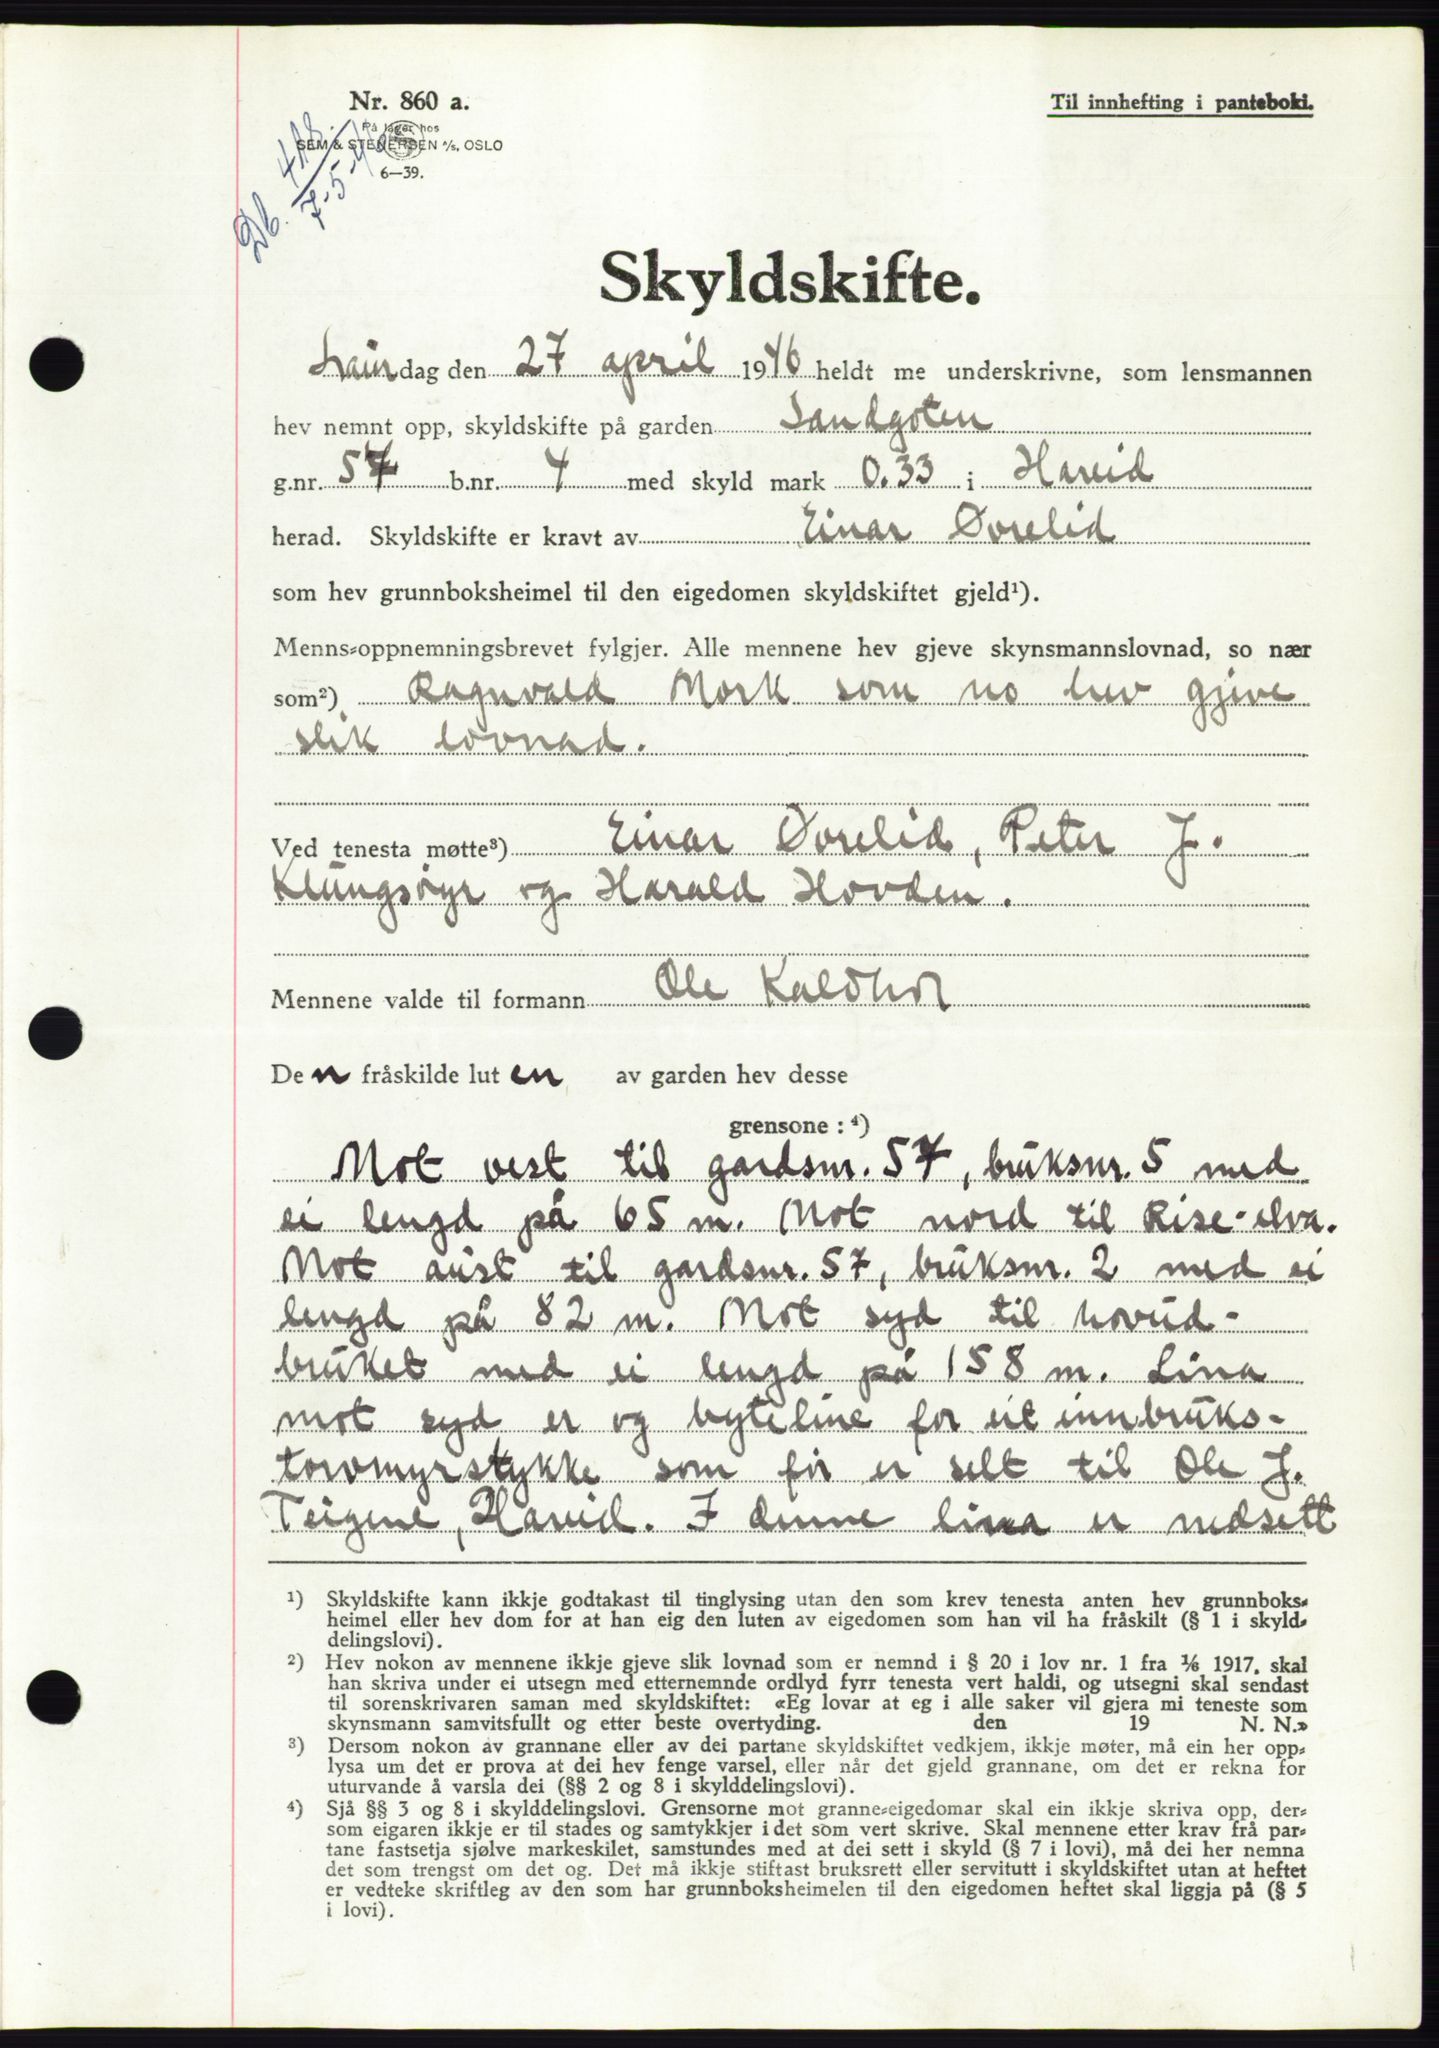 Nr. 860 a.
Til innhefting i panteboki.
På lager hos
SEM & STENERSEN A/S, OSLO
6—39.
Db. 418.
7-5-46
Skyldskifte.
Laurdag den 27 april 1946 heldt me underskrivne, som lensmannen
hev nemnt opp, skyldskifte på garden Sandgoten
g.nr. 57 b.nr. 4 med skyld mark 0.33 i Hareid
herad. Skyldskifte er kravt av Einar Overlid
som hev grunnboksheimel til den eigedomen skyldskiftet gjeld¹).
Menns-oppnemningsbrevet fylgjer. Alle mennene hev gjeve skynsmannslovnad, so nær
som²) Ragnvald Mork som no hev gjeve
slik lovnad.
Ved tenesta møtte³) Einar Øvrelid, Peter J.
Klungsöyr og Harald Hovden.
Mennene valde til formann Ole Kaldhol
Den fråskilde luten av garden hev desse
grensone : ⁴)
Mot vest til gardsnr. 57, bruksnr. 5 med
ei lengd på 65 m. Mot nord til Rise-elva.
Mot aust til gardsnr. 57, bruksnr. 2 med ei
lengd på 82 m. Mot syd til hovud-
bruket med ei lengd på 158 m. Lina
mot syd er og byteline for eit innbruks-
torvmyrstykke som før er selt til Ole J.
Teigene, Hareid. I denne lina er nedsett
¹) Skyldskifte kann ikkje godtakast til tinglysing utan den som krev tenesta anten hev grunnboks-
heimel eller hev dom for at han eig den luten av eigedomen som han vil ha fråskilt (§ 1 i skyld-
delingslovi).
²) Hev nokon av mennene ikkje gjeve slik lovnad som er nemnd i § 20 i lov nr. 1 fra 1/6 1917, skal
han skriva under ei utsegn med etternemnde ordlyd fyrr tenesta vert haldi, og utsegni skal sendast
til sorenskrivaren saman med skyldskiftet: «Eg lovar at eg i alle saker vil gjera mi teneste som
skynsmann samvitsfullt og etter beste overtyding. den 19 N. N.»
³) Dersom nokon av grannane eller av dei partane skyldskiftet vedkjem, ikkje møter, må ein her opp-
lysa um det er prova at dei hev fenge varsel, eller når det gjeld grannane, om det er rekna for
uturvande å varsla dei (§§ 2 og 8 i skylddelingslovi).
⁴) Sjå §§ 3 og 8 i skylddelingslovi. Grensorne mot granne-eigedomar skal ein ikkje skriva opp, der-
som eigaren ikkje er til stades og samtykkjer i det som vert skrive. Skal mennene etter krav frå par-
tane fastsetja sjølve markeskilet, samstundes med at dei sett i skyld (§ 7 i lovi), må dei her nemna
det som trengst om det og. Det må ikkje stiftast bruksrett eller servitutt i skyldskiftet utan at heftet
er vedteke skriftleg av den som har grunnboksheimelen til den eigedomen heftet skal liggja på (§ 5
i lovi).